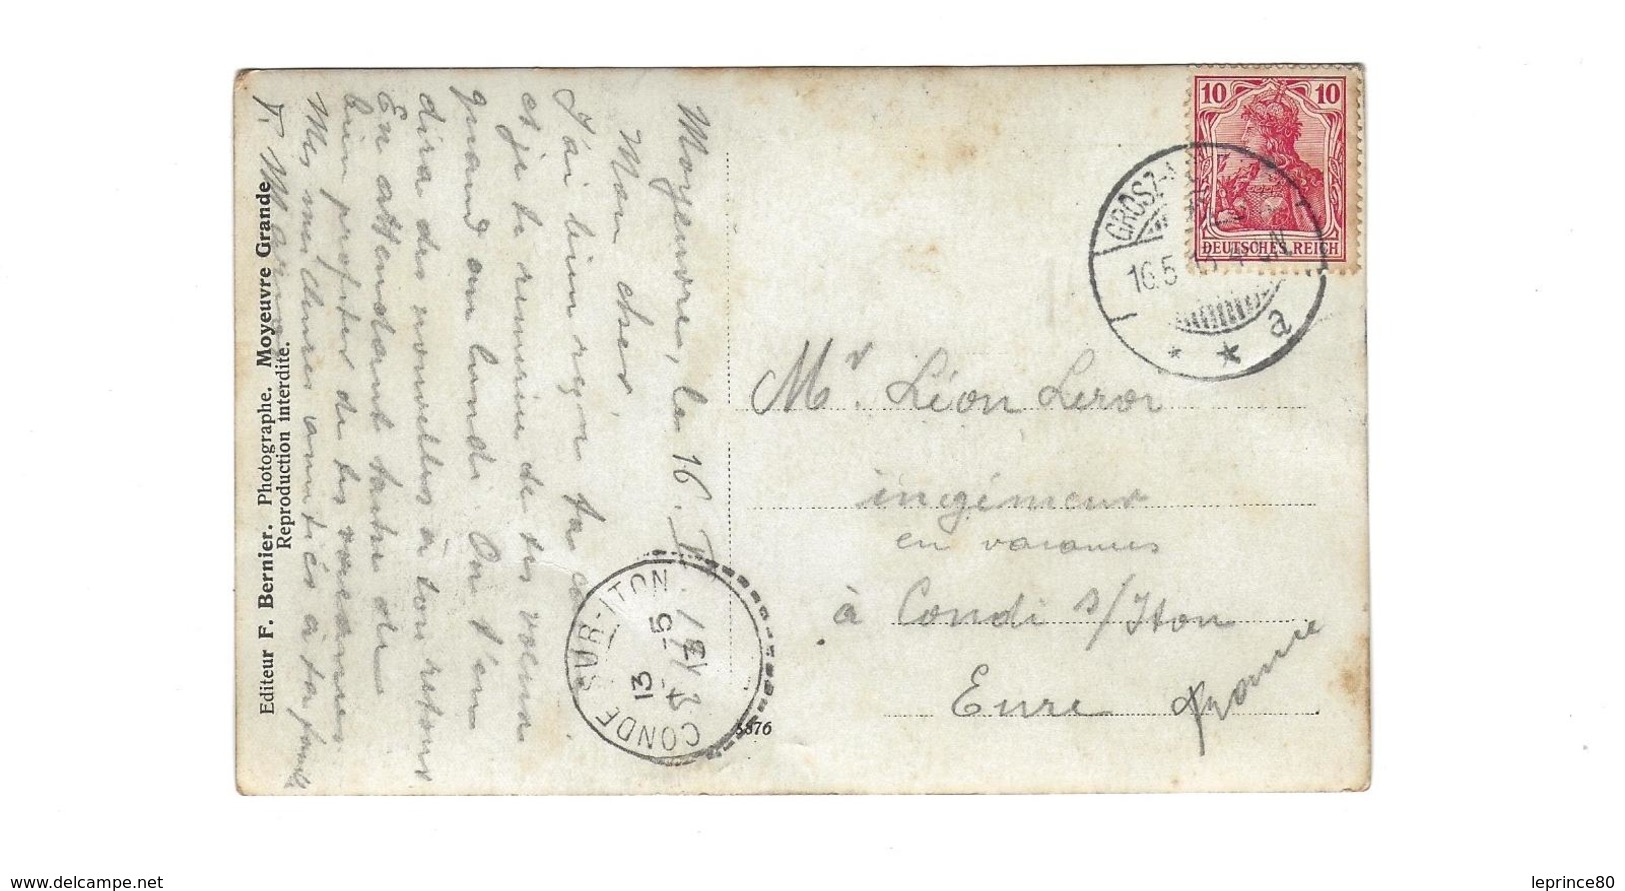 Moyeuvre, le 16. V
Mon cher,
J'ai bien reçu ta
et je te remercie de tes
quand au lundi. On t'en
dira des nouvelles à ton retour
En attendant tache de
bien profiter de tes vacances
Mes meilleures amitiés à ta famille
Editeur F. Bernier. Photographe. Moyeuvre Grande
Reproduction interdite.
10 10
DEUTSCHES REICH
GROSZ-
16.5.13
a
Mr. Léon Leroi
ingénieur
en vacances
à Condé s/Iton
Eure France
CONDE SUR-ITON
13
5376
www.delcampe.net
leprince80